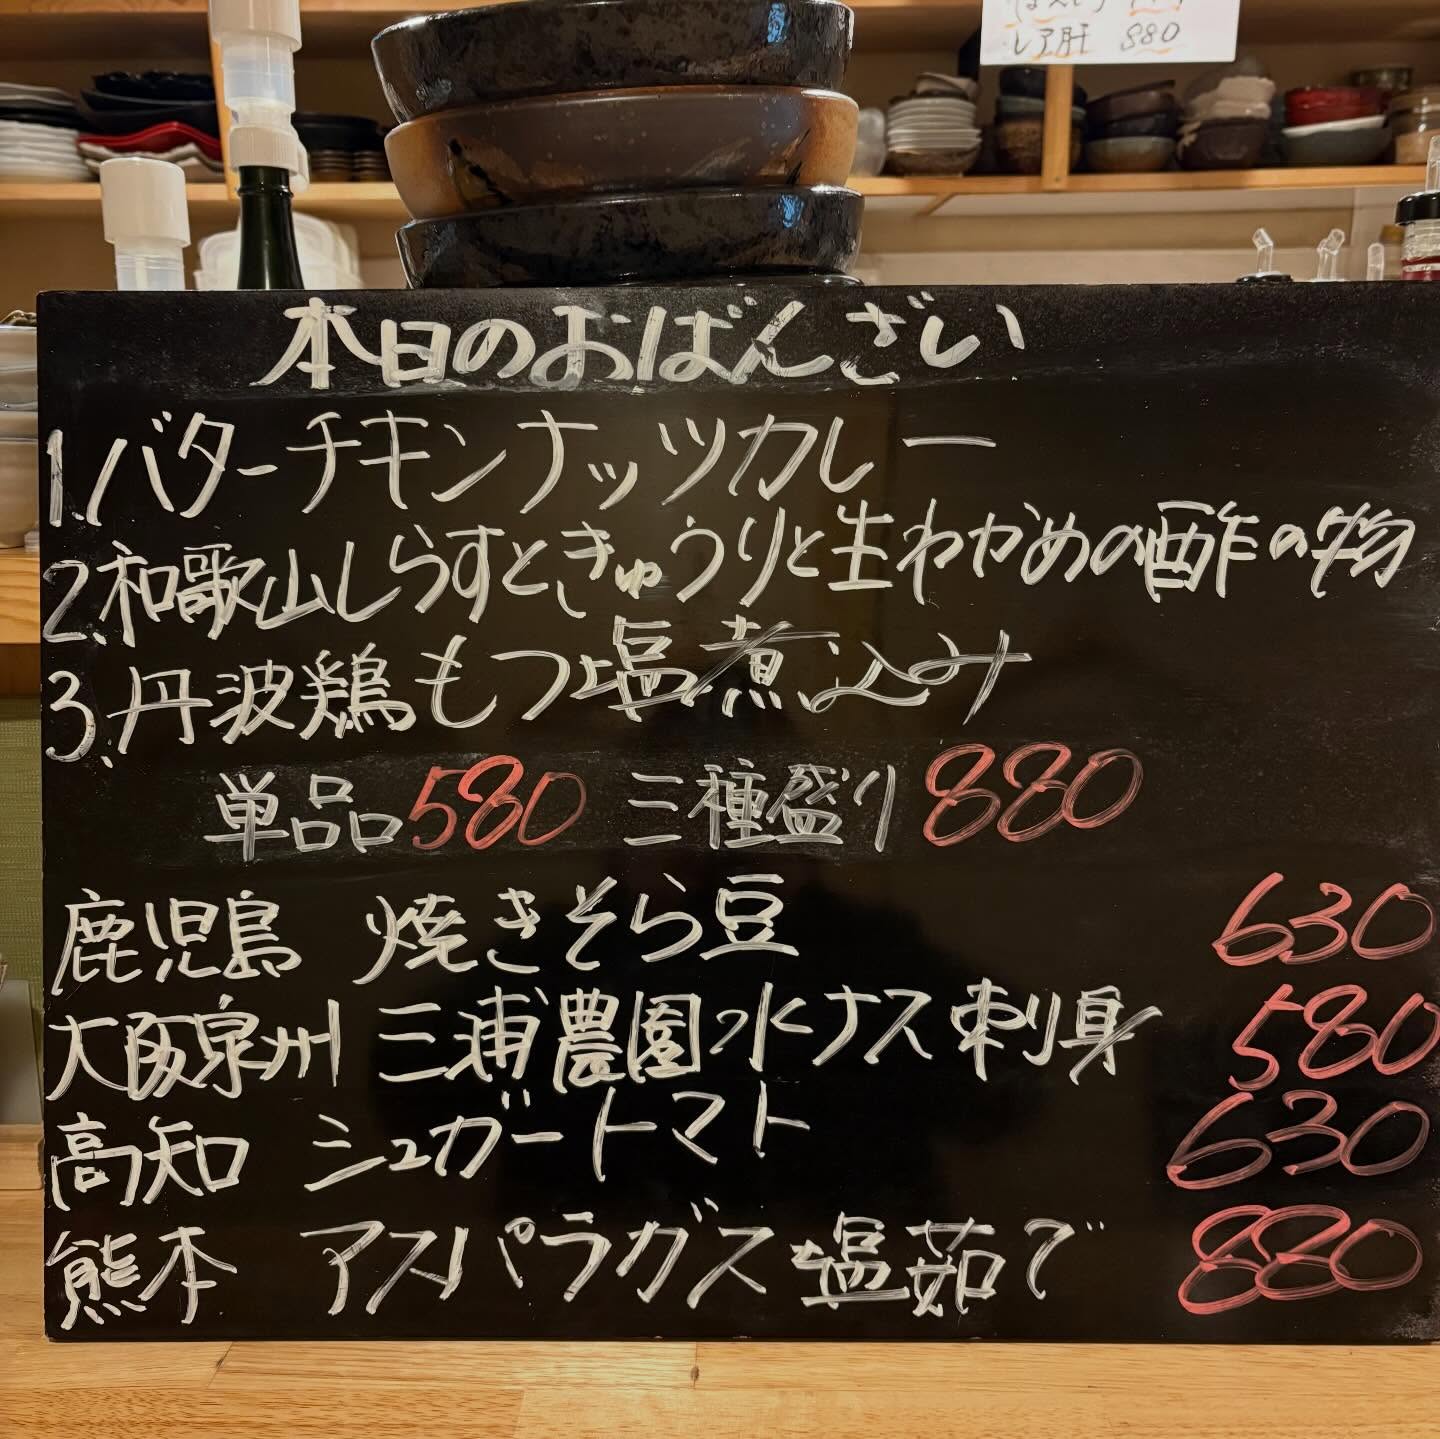 レア肝 880
本日のおばんざい
1.バターチキンナッツカレー
2.和歌山しらすときゅうりと生わかめの酢の物
3.丹波鶏もつ塩煮込み
単品580 三種盛り880
鹿児島 焼きそら豆 630
大阪泉州 三浦農園水ナス刺身 580
高知 シュガートマト 630
熊本 アスパラガス塩茹で 880